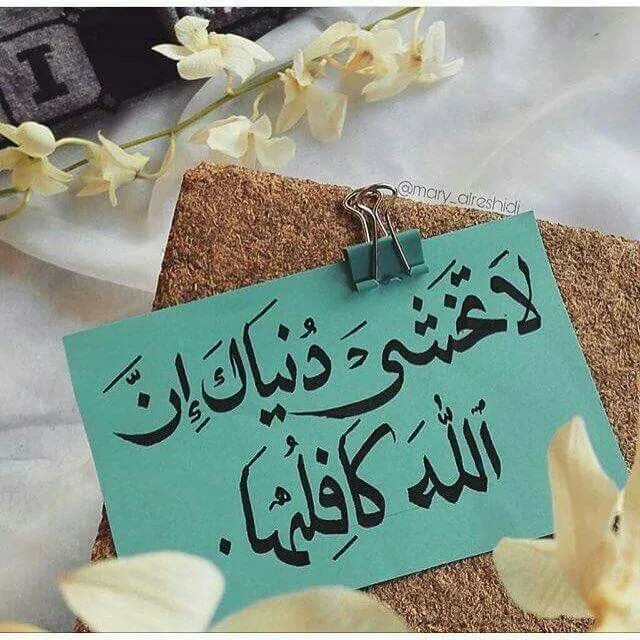 I
@mary_alreshidi
لَا تَخْشَى دُنيَاكَ إِنَّ
اللَّهَ كَافِلُهَا.